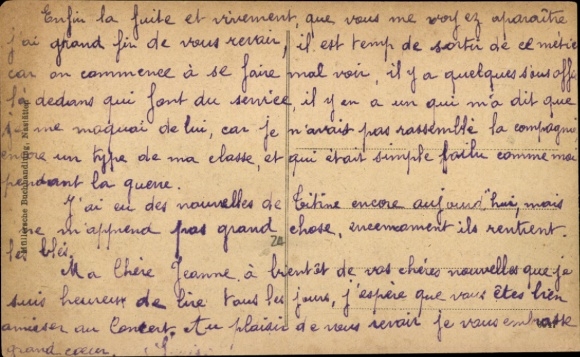 Enfin la fuite et vivement, que vous me voyez aparaître
j'ai grand fin de vous revair, il est temp de sortir de ce métie
car on commence à se faire mal voir, il y a quelques sous offi
la dedans qui font du service, il y en a un qui m'a dit que
je me maquai de lui, car je n'avais pas rassemblé la compagni
encore un type de ma classe, et qui était simple failu comme moi
pendant la guere.
J'ai eu des nouvelles de Titine encore aujourd'hui, mais
ne m'apprend pas grand chose, encemament ils rentrent
les blés.
Ma Chère Jeanne, à bientôt de vos chères nouvelles que je
suis heureux de lire tous les jours, j'espère que vous êtes bien
amieser au Concert. Au plaisir de vous revair je vous embrasse
grand cœur.
20
Müllersche Buchhandlung, Neustadt